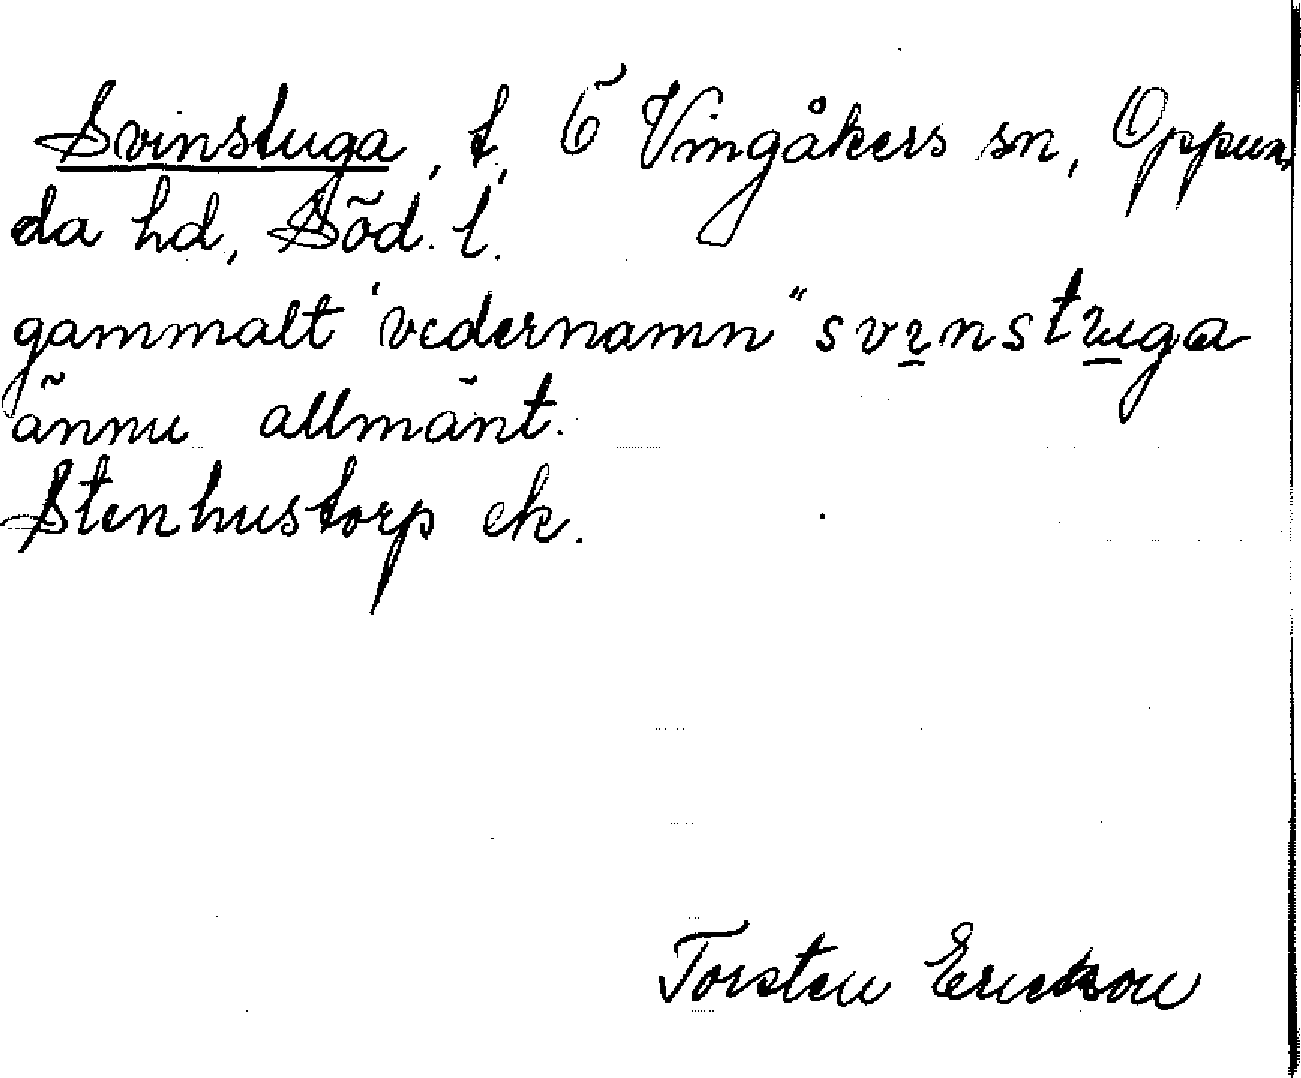 Svinstuga, t, Ö Vingåkers sn, Oppun-
da hd, Söd. l.
gammalt "vedernamn" svinstuga
ännu allmänt.
Stenhustorp ek.
Torsten Ericsson